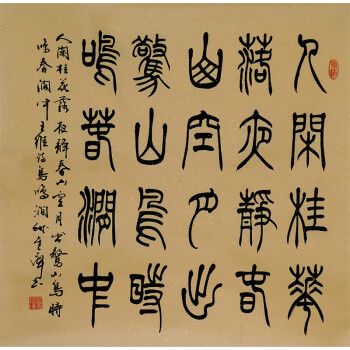 人閑桂華
落夜靜春
山空月出
驚山鳥時
鳴春澗中
人閑桂花落夜靜春山空月出驚山鳥時
鳴春澗中王維詩鳥鳴澗